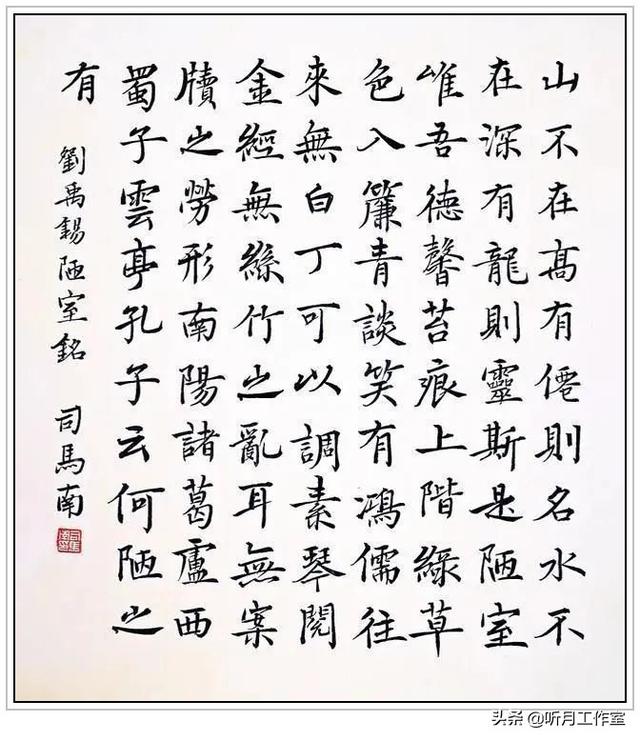 山不在髙有僊則名水不
在深有龍則靈斯是陋室
唯吾德馨苔痕上階綠草
色入簾青談笑有鴻儒往
來無白丁可以調素琴閱
金經無絲竹之亂耳無案
牘之勞形南陽諸葛廬西
蜀子雲亭孔子云何陋之
有
劉禹錫陋室銘 司馬南
头条 @听月工作室